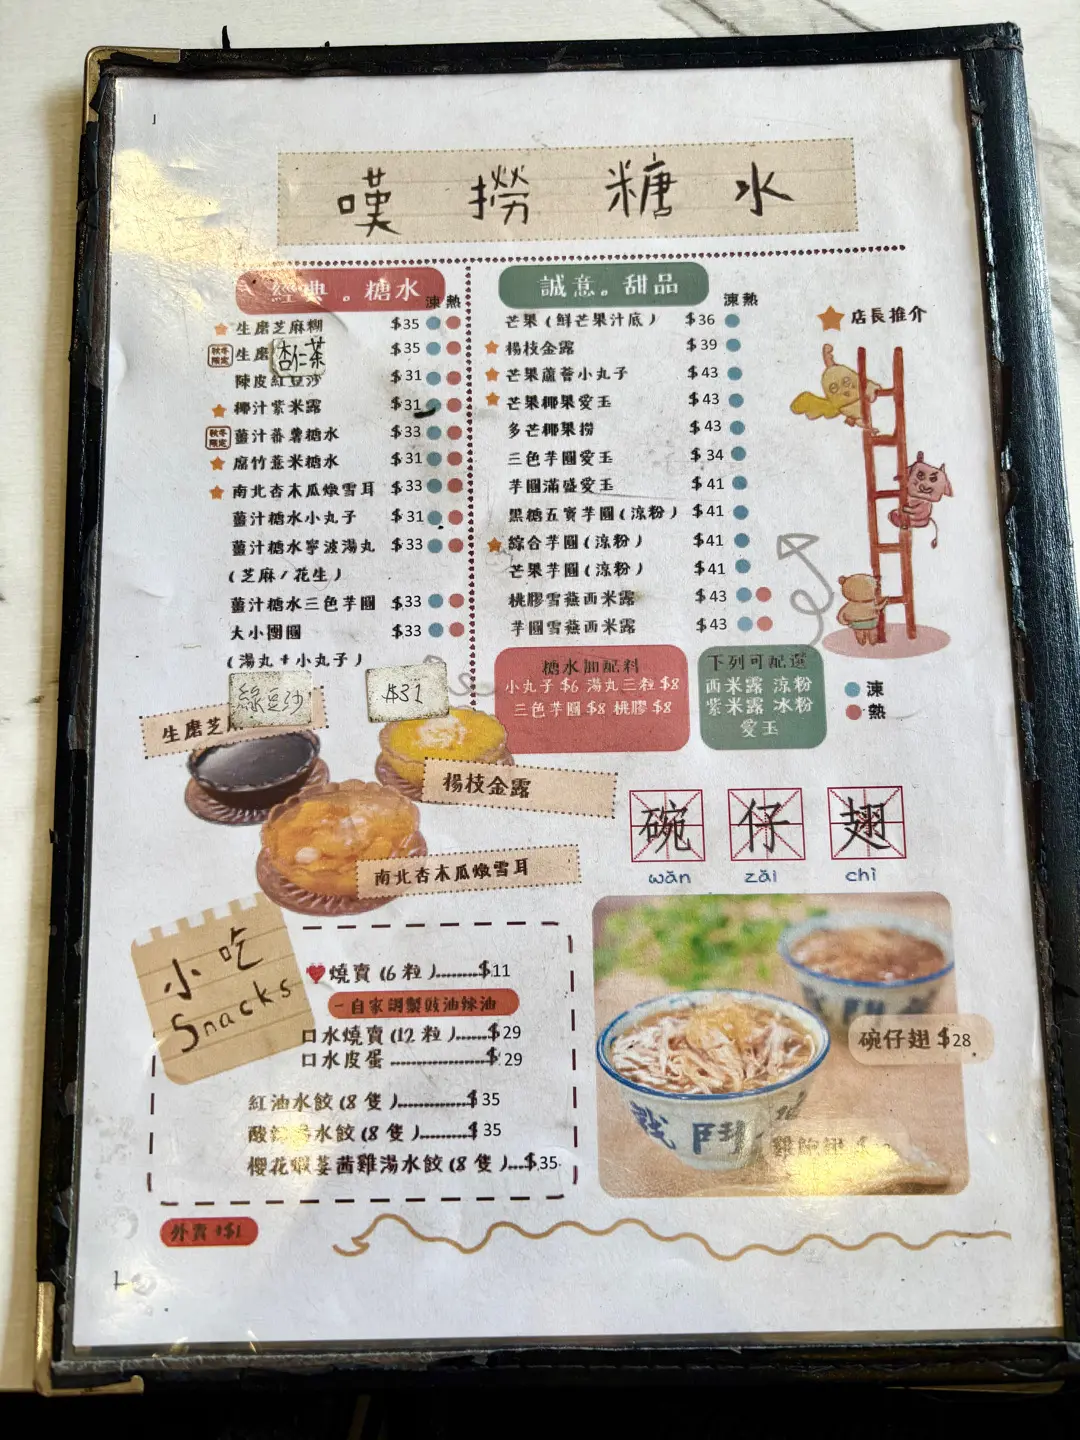 嘆 撈 糖 水
經典。糖水
凍 熱
生磨芝麻糊 $35
秋冬限定 生磨杏仁茶 $35
陳皮紅豆沙 $31
椰汁紫米露 $31
秋冬限定 薑汁蕃薯糖水 $33
腐竹薏米糖水 $31
南北杏木瓜燉雪耳 $33
薑汁糖水小丸子 $31
薑汁糖水寧波湯丸 $33
(芝麻/花生)
薑汁糖水三色芋圓 $33
大小團圓 $33
(湯丸+小丸子)
綠豆沙 $31
誠意。甜品
凍 熱
芒果(鮮芒果汁底) $36
楊枝金露 $39
芒果蘆薈小丸子 $43
芒果椰果愛玉 $43
多芒椰果撈 $43
三色芋圓愛玉 $34
芋圓滿盛愛玉 $41
黑糖五寶芋圓(涼粉) $41
綜合芋圓(涼粉) $41
芒果芋圓(涼粉) $41
桃膠雪燕西米露 $43
芋圓雪燕西米露 $43
店長推介
糖水加配料
小丸子 $6 湯丸三粒 $8
三色芋圓 $8 桃膠 $8
下列可配選
西米露 涼粉
紫米露 冰粉
愛玉
凍
熱
生磨芝麻
楊枝金露
南北杏木瓜燉雪耳
碗 仔 翅
wǎn zǎi chì
碗仔翅 $28
小吃
Snacks
燒賣(6 粒)........$11
-自家調製豉油辣油
口水燒賣(12 粒)......$29
口水皮蛋................$29
紅油水餃(8 隻)............$35
酸辣湯水餃(8 隻)........$35
櫻花蝦蔓茜雞湯水餃(8 隻)...$35
外賣 +$1